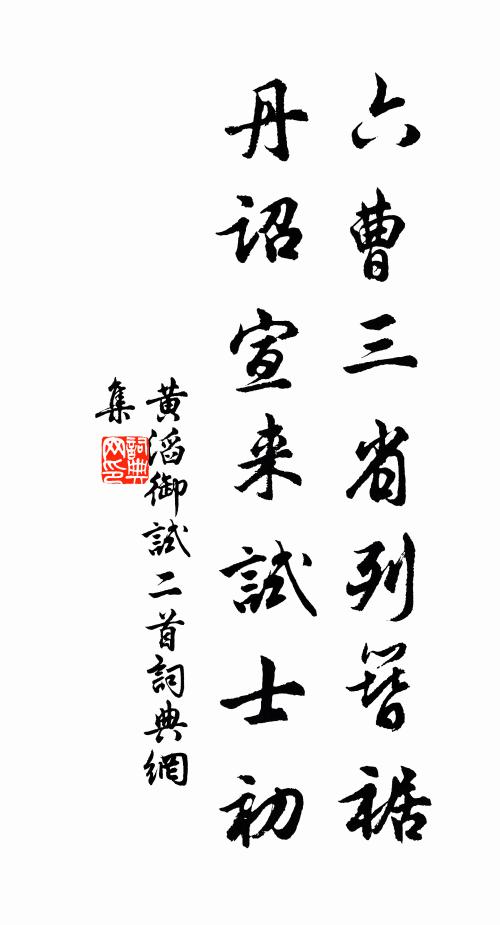 六曹三省列簪裾
丹詔宣来試士初
黄滔御試二首詞典網
集
詞典网印